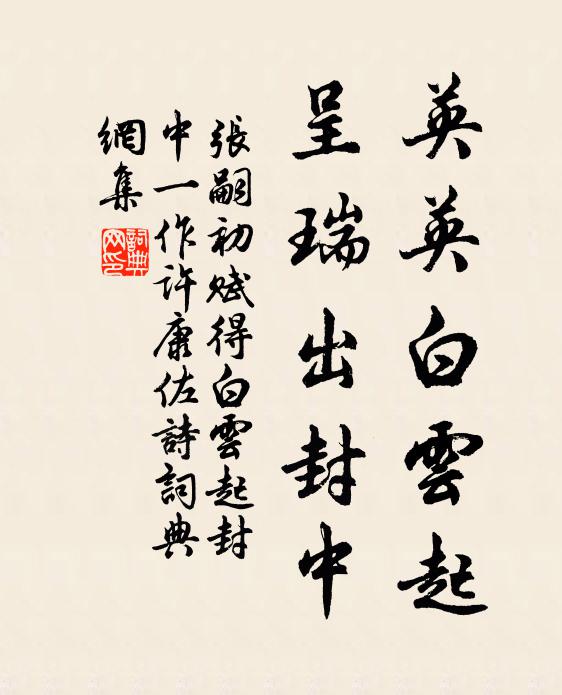 英英白雲起
呈瑞出封中
張嗣初賦得白雲起封
中一作許康佐詩詞典
網集
詞典網印